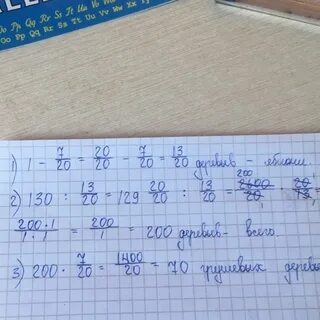 Oo Pp Qq Rr Ss Tt Uu Vv Ww
1) 1 - 7/20 = 20/20 - 7/20 = 13/20 деревьев - яблони.
2) 130 : 13/20 = 129 20/20 : 13/20 = 2600/20 : 20/13 =
200·1/1·1 = 200/1 = 200 деревьев - всего.
3) 200 · 7/20 = 1400/20 = 70 грушевых деревь